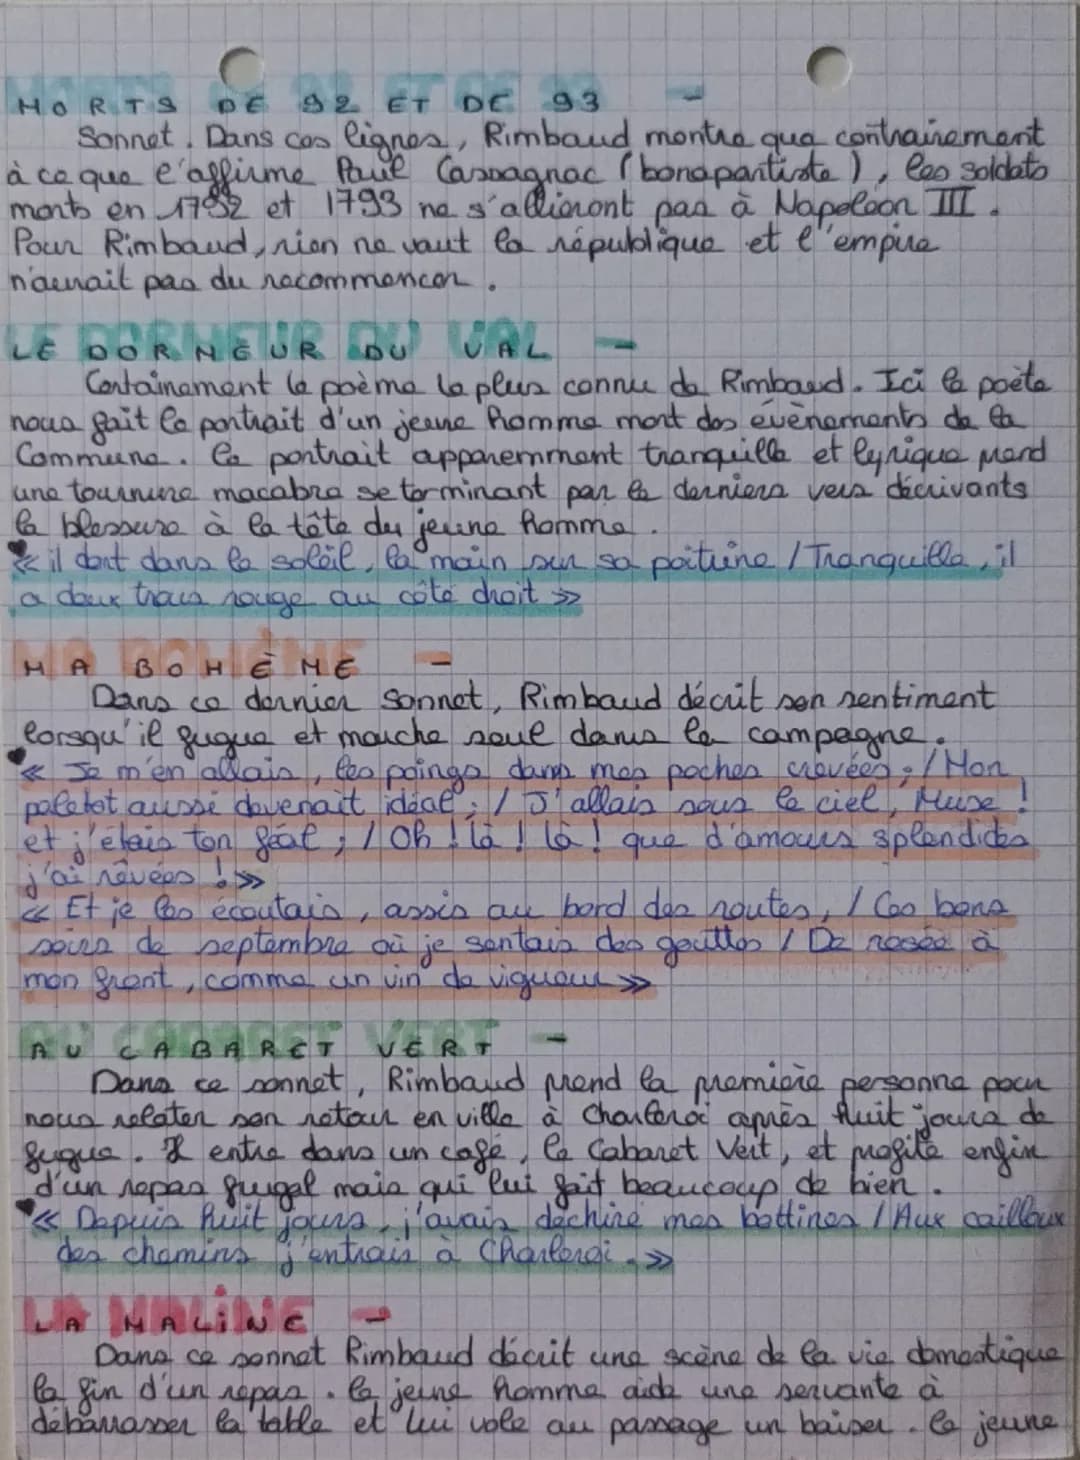 MORTS DE 92 ET DE 93 -
Sonnet. Dans ces lignes, Rimbaud montre que contrairement
à ce que l'affirme Paul Cassagnac (bonapartiste), les soldats
morts en 1792 et 1793 ne s'allieront pas à Napoléon III.
Pour Rimbaud, rien ne vaut la république et l'empire
n'aurait pas du recommencer.
LE DORMEUR DU VAL -
Certainement le poème le plus connu de Rimbaud. Ici le poète
nous fait le portrait d'un jeune homme mort des évènements de la
Commune. Le portrait apparemment tranquille et lyrique prend
une tournure macabre se terminant par le derniers vers décrivants
la blessure à la tête du jeune homme.
« il dort dans le soleil, la main sur sa poitrine / Tranquille, il
a deux trous rouge au côté droit »
MA BOHÈME -
Dans ce dernier sonnet, Rimbaud décrit son sentiment
lorsqu'il fugue et marche seul dans la campagne.
« Je m'en allais, les poings dans mes poches crevées ; / Mon
paletot aussi devenait idéal ; / J'allais sous le ciel, Muse !
et j'étais ton féal ; / Oh ! là ! là ! que d'amours splendides
j'ai rêvées ! »
« Et je les écoutais, assis au bord des routes, / Ces bons
soirs de septembre où je sentais des gouttes / De rosée à
mon front, comme un vin de vigueur »
AU CABARET VERT -
Dans ce sonnet, Rimbaud prend la première personne pour
nous relater son retour en ville à Charleroi après huit jours de
fugue. Il entre dans un café, le Cabaret Vert, et profite enfin
d'un repas frugal mais qui lui fait beaucoup de bien.
« Depuis huit jours, j'avais déchiré mes bottines / Aux cailloux
des chemins j'entrais à Charleroi. »
LA MALINE -
Dans ce sonnet Rimbaud décrit une scène de la vie domestique
la fin d'un repas. Le jeune homme aide une servante à
débarrasser la table et lui vole au passage un baiser. Le jeune